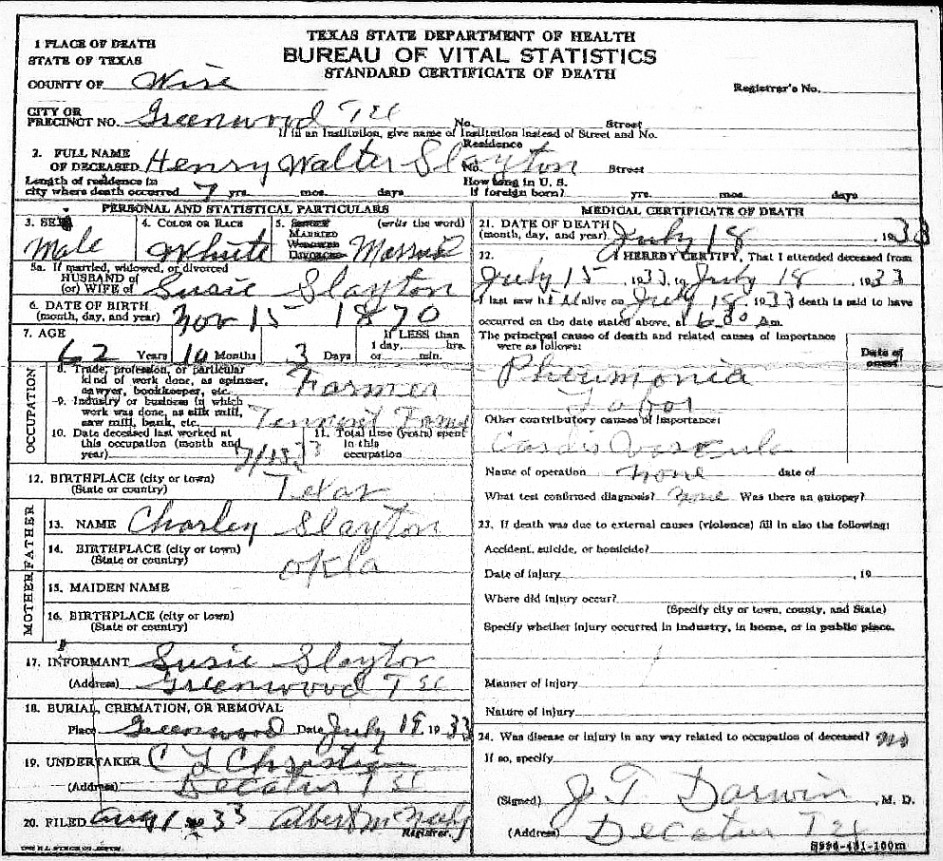 TEXAS STATE DEPARTMENT OF HEALTH
BUREAU OF VITAL STATISTICS
STANDARD CERTIFICATE OF DEATH
1 PLACE OF DEATH
STATE OF TEXAS
COUNTY OF Wise
Registrar's No.
CITY OR PRECINCT NO. Greenwood Tex No. Street
If in an Institution, give name of Institution instead of Street and No.
2. FULL NAME OF DECEASED Henry Walter Slayton Residence No. Street
Length of residence in city where death occurred 7 yrs. mos. days How long in U. S. if foreign born? yrs. mos. days
PERSONAL AND STATISTICAL PARTICULARS
3. SEX Male
4. COLOR OR RACE White
5. MARRIED (write the word) Married
5a. If married, widowed, or divorced
HUSBAND of
(or) WIFE of Susie Slayton
6. DATE OF BIRTH
(month, day, and year) Nov 15 1870
7. AGE 62 Years 10 Months 3 Days If LESS than 1 day, hrs. or min.
OCCUPATION
8. Trade, profession, or particular kind of work done, as spinner, sawyer, bookkeeper, etc. Farmer
9. Industry or business in which work was done, as silk mill, saw mill, bank, etc.
10. Date deceased last worked at this occupation (month and year) 7/15/33
11. Total time (years) spent in this occupation
12. BIRTHPLACE (city or town)
(State or country) Texas
FATHER
13. NAME Charley Slayton
14. BIRTHPLACE (city or town)
(State or country) Okla
MOTHER
15. MAIDEN NAME
16. BIRTHPLACE (city or town)
(State or country)
17. INFORMANT Susie Slayton
(Address) Greenwood Tex
18. BURIAL, CREMATION, OR REMOVAL
Place Greenwood Date July 19, 1933
19. UNDERTAKER C L Christian
(Address) Decatur Tex
20. FILED Aug 1 33 Albert McNeely
Registrar.
MEDICAL CERTIFICATE OF DEATH
21. DATE OF DEATH
(month, day, and year) July 18, 1933
22. I HEREBY CERTIFY, That I attended deceased from
July 15 1933, to July 18 1933
I last saw him alive on July 18, 1933 death is said to have
occurred on the date stated above, at 6:30 am.
The principal cause of death and related causes of importance
were as follows: Date of onset
Pneumonia
Lobor
Other contributory causes of importance:
Name of operation none date of
What test confirmed diagnosis? none Was there an autopsy?
23. If death was due to external causes (violence) fill in also the following:
Accident, suicide, or homicide?
Date of injury , 19
Where did injury occur?
(Specify city or town, county, and State)
Specify whether injury occurred in industry, in home, or in public place.
Manner of injury
Nature of injury
24. Was disease or injury in any way related to occupation of deceased? no
If so, specify
(Signed) J T Darwin, M. D.
(Address) Decatur Tex